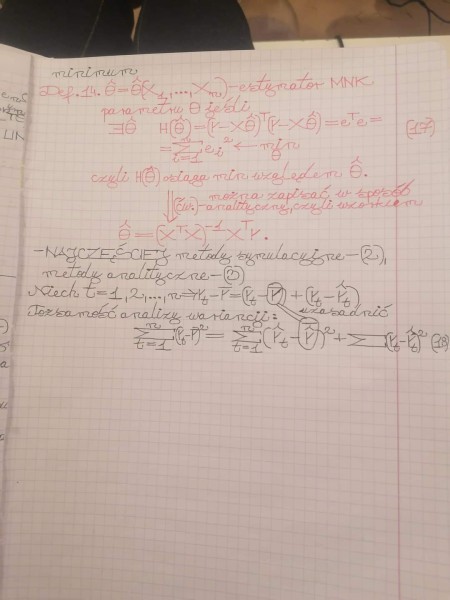 minimum
Def. 14. θ̂ = θ̂(X₁,...,Xₙ) - estymator MNK
parametru θ jeśli
∃θ̂ H(θ̂) = (Y-Xθ̂)ᵀ(Y-Xθ̂) = eᵀe =
= ∑ᵢ₌₁ⁿ eᵢ² ← min θ (17)
czyli H(θ̂) osiąga min względem θ̂.
można zapisać w sposób
(ćw.) - analityczny, czyli wzorem
θ̂ = (XᵀX)⁻¹XᵀY.
- NAJCZĘŚCIEJ metody symulacyjne - (2),
metody analityczne - (2)
Niech t = 1, 2, ..., n → Yₜ - Ȳ = (Ŷₜ - Ȳ) + (Yₜ - Ŷₜ)
uzasadnić
Tożsamość analizy wariancji:
∑ₜ₌₁ⁿ (Yₜ - Ȳ)² = ∑ₜ₌₁ⁿ (Ŷₜ - Ȳ)² + ∑ (Yₜ - Ŷₜ)² (18)
LIN